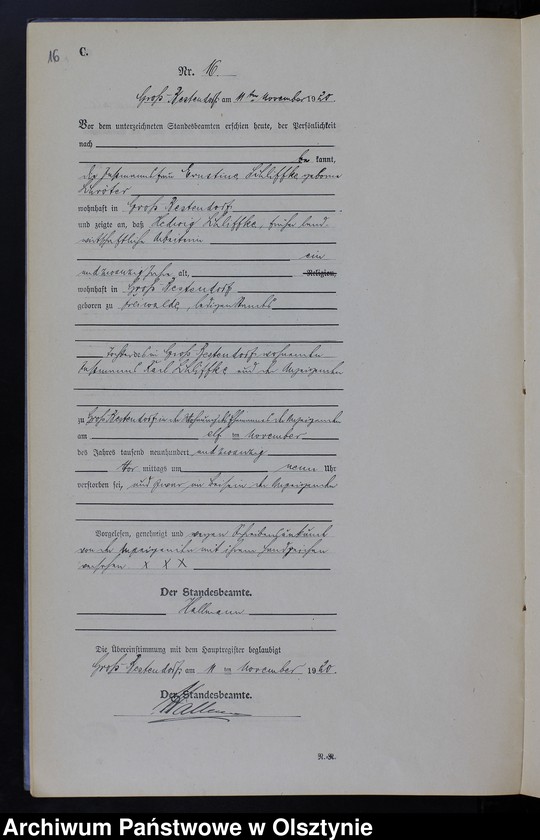 16
C.
Nr. 16.
Groß Bestendorf am 11ten November 1920
Vor dem unterzeichneten Standesbeamten erschien heute, der Persönlichkeit
nach
be kannt,
die Instmannsfrau Ernstine Schliffke geborne
wohnhaft in Groß Bestendorf
und zeigte an, daß Hedwig Schliffke, früher land
wirtschaftliche Arbeiterin
ein
und zwanzig Jahre alt, Religion,
wohnhaft in Groß Bestendorf
geboren zu ledigen Standes
Tochter des in Groß Bestendorf wohnenden
Instmanns Karl Schliffke und der Anzeigenden
zu Groß Bestendorf in der Wohnung des Ehemannes der Anzeigenden
am elf ten November
des Jahres tausend neunhundert und zwanzig
Vor mittags um neun Uhr
verstorben sei, und zwar im Beisein der Anzeigenden
Vorgelesen, genehmigt und wegen Schreibensunkunde
von der Anzeigenden mit ihrem Handzeichen
versehen. X X X
Der Standesbeamte.
Hallmann
Die Übereinstimmung mit dem Hauptregister beglaubigt
Groß Bestendorf am 11 ten November 1920.
Der Standesbeamte.
Hallmann
N.-R.
Archiwum Państwowe w Olsztynie